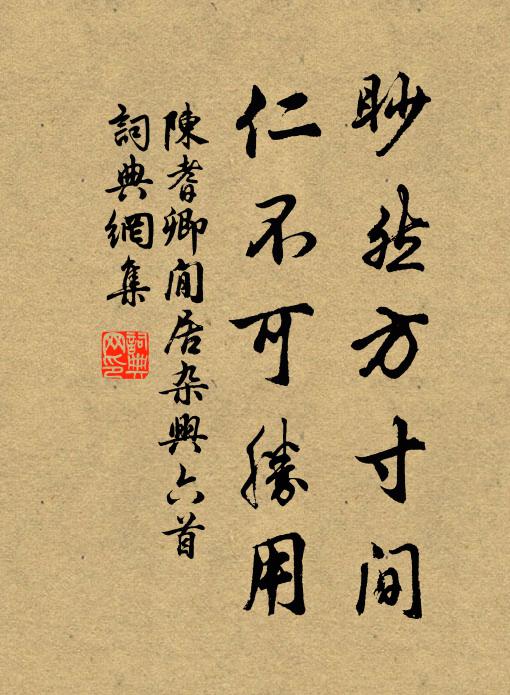 眇然方寸间
仁不可勝用
陳耆卿閒居杂興六首
詞典網集
詞典网印